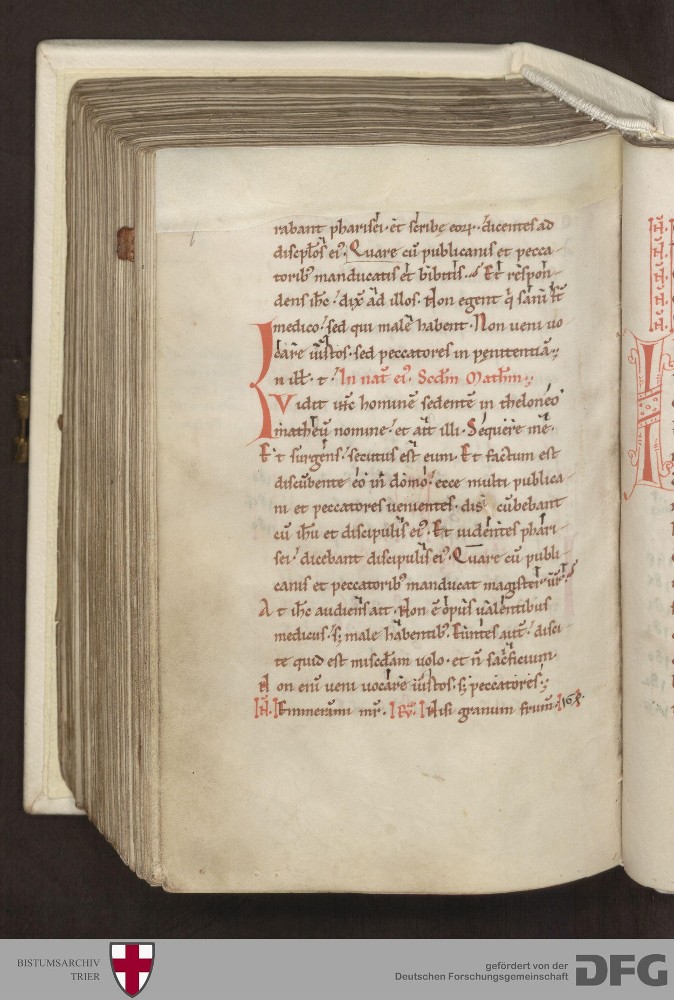 rabant pharisei · et scribę eorꝝ · dicentes ad
discipłos eiꝰ. Quare cū publicanis et pecca
toribꝰ manducatis et bibitis. Et respon-
dens ihc · dix̄ ad illos. Non egent q̇ sani st̄
medico · sed qui male habent. Non ueni uo
care iustos · sed peccatores in penitentiā.
In ill̄. t. In nat̄ eiꝰ. Scdm Mathm̄.
Vidit ihc hominē sedentē in theloneo
matheū nomine · et ait illi. Sequere me.
Et surgens · secutus est eum. Et factum est
discūbente eo in domo · ecce multi publica
ni et peccatores uenientes · discūbebant
cū ihu et discipulis eiꝰ. Et uidentes phari-
sei · dicebant discipulis eiꝰ. Quare cū publi-
canis et peccatoribꝰ manducat magister ur̄.
At ihc audiens ait. Non ē opus ualentibus
medicus · sꝫ male habentibꝰ. Euntes aut̄ · disci-
te quid est miscd̄am uolo · et n̄ sacrificium.
Non eni ueni uocare iustos · sꝫ peccatores.
Emmerāmi mr̄. Nisi granum frum̄. 168.
BISTUMSARCHIV
TRIER
gefördert von der
Deutschen Forschungsgemeinschaft
DFG